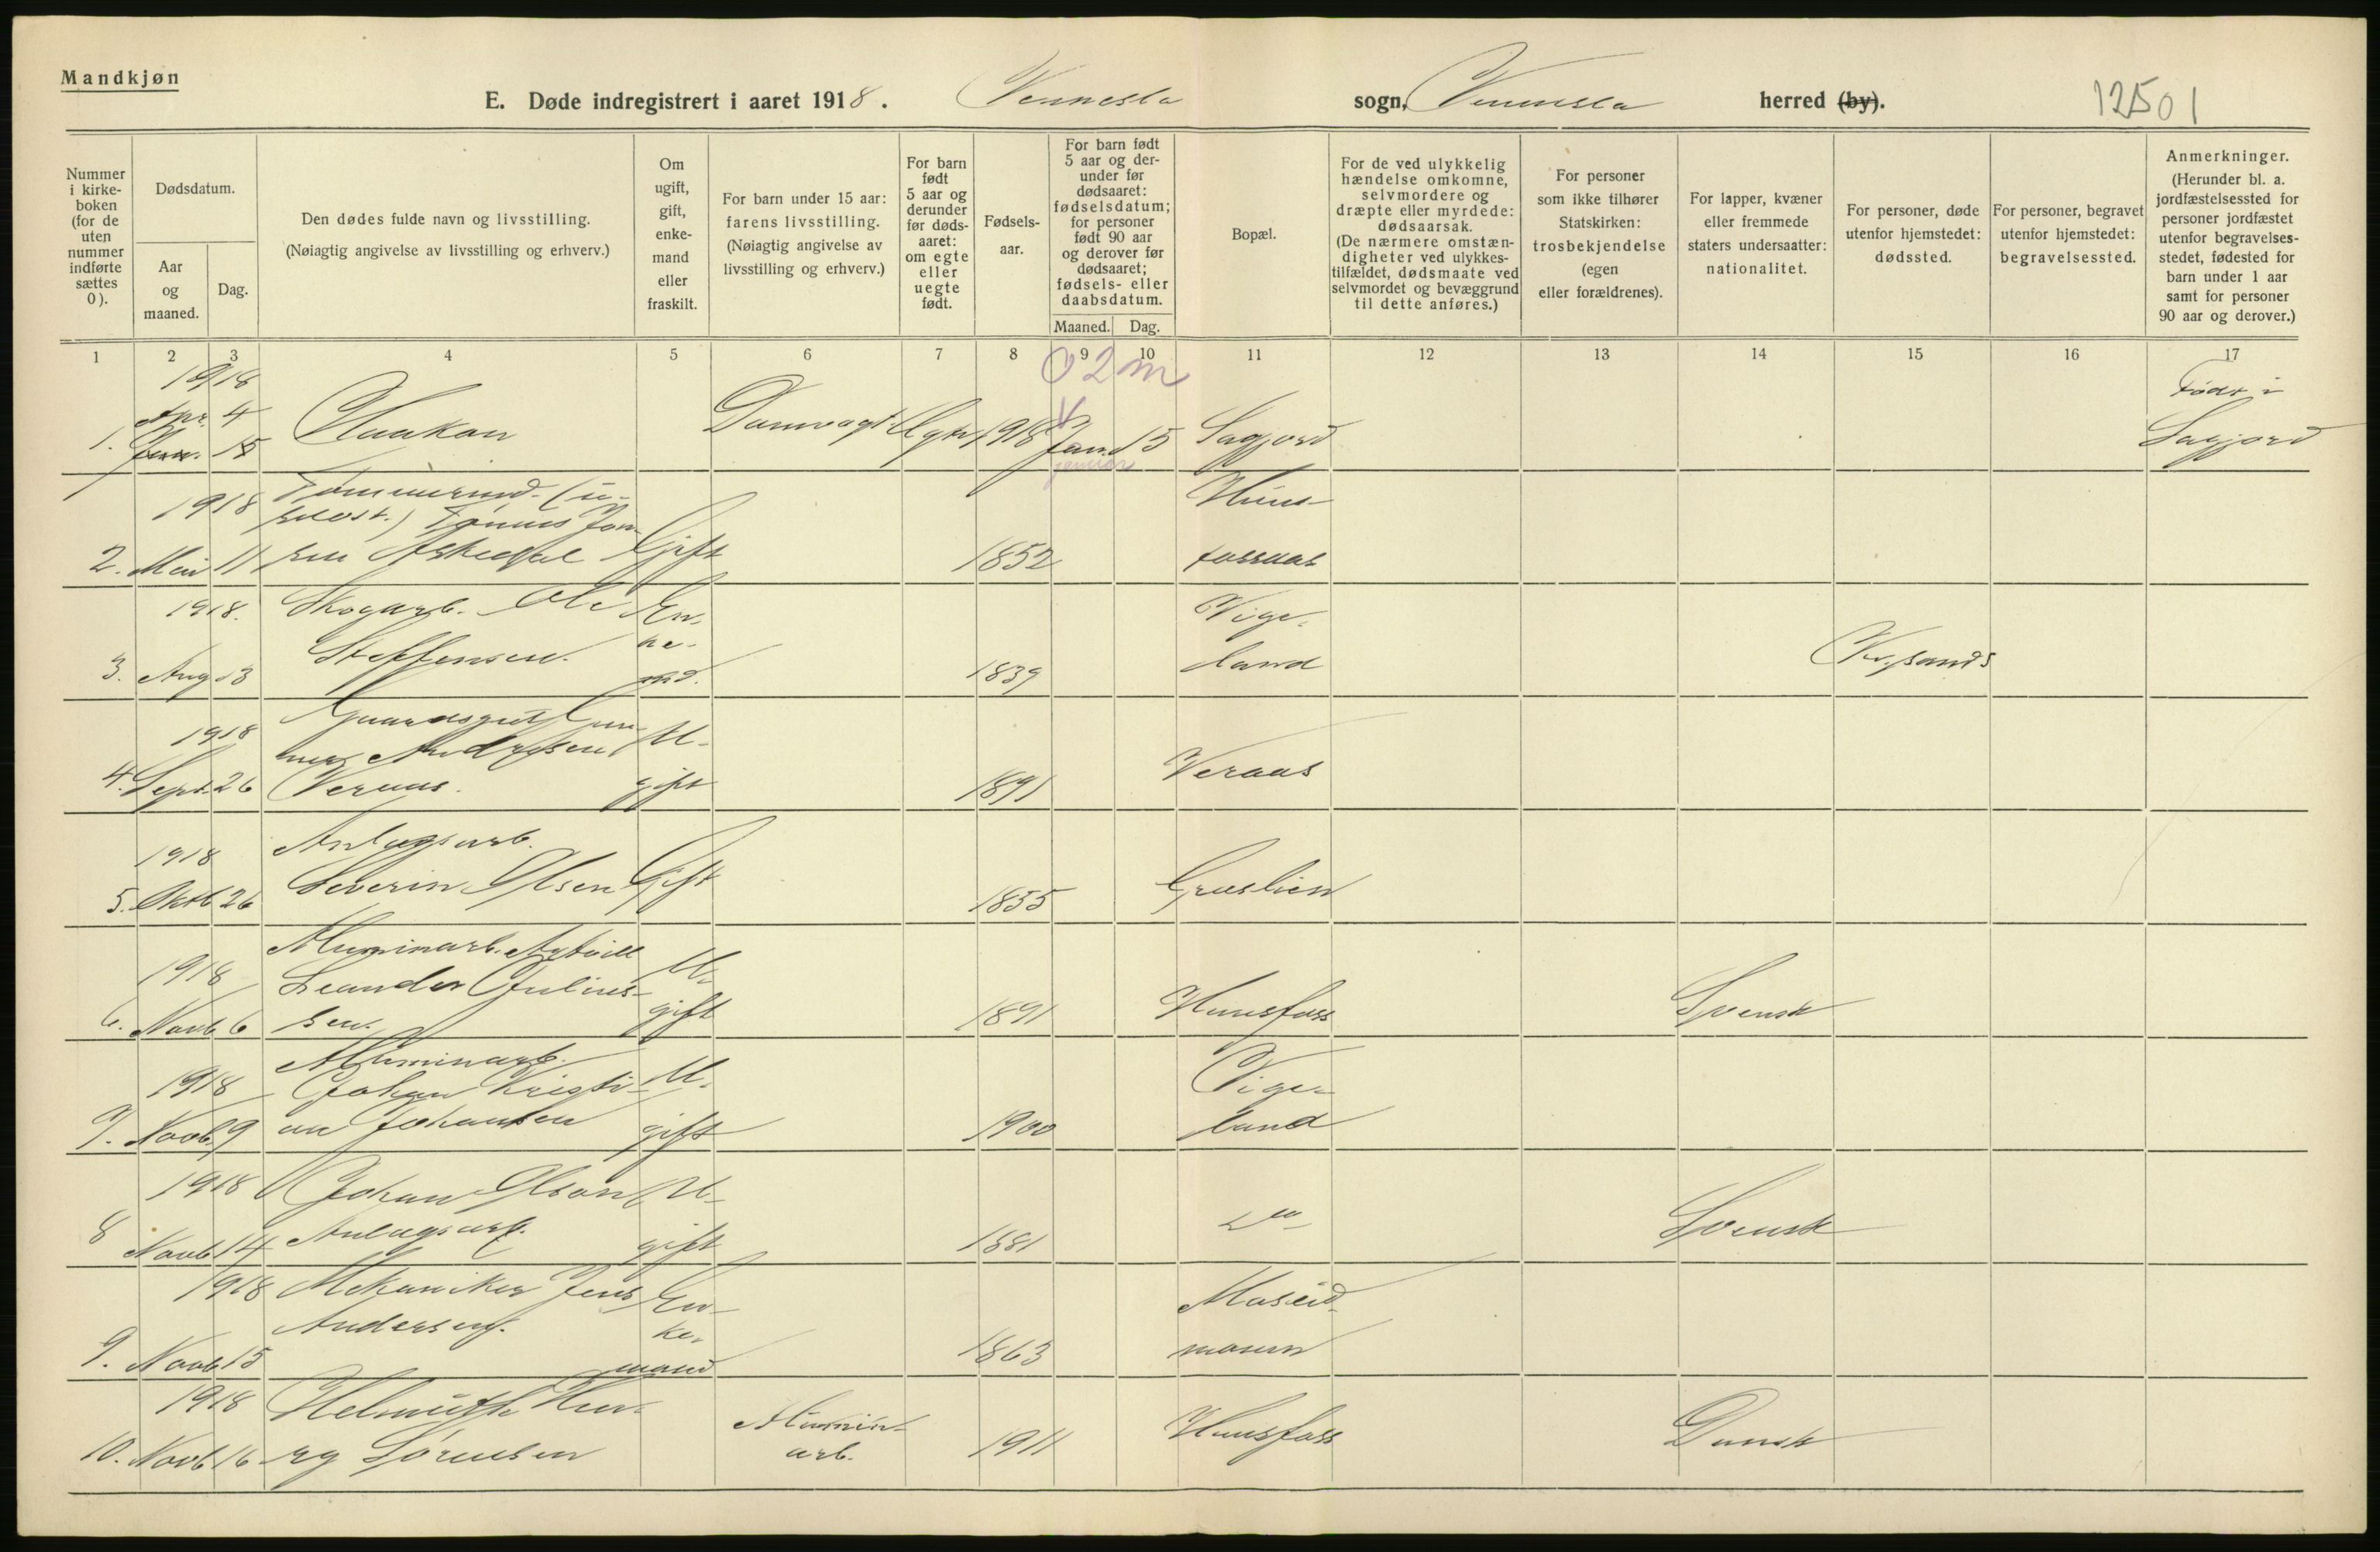 Mandkjøn
E. Døde indregistrert i aaret 1918. Vennesla sogn, Vennesla herred (by). 12501
Nummer i kirke-boken (for de uten nummer indførte sættes 0).
Dødsdatum.
Aar og maaned.
Dag.
Den dødes fulde navn og livsstilling.
(Nøiagtig angivelse av livsstilling og erhverv.)
Om ugift, gift, enke-mand eller fraskilt.
For barn under 15 aar: farens livsstilling. (Nøiagtig angivelse av livsstilling og erhverv.)
For barn født 5 aar og derunder før døds-aaret: om egte eller uegte født.
Fødsels-aar.
For barn født 5 aar og der-under før dødsaaret: fødselsdatum; for personer født 90 aar og derover før dødsaaret; fødsels- eller daabsdatum.
Maaned. Dag.
Bopæl.
For de ved ulykkelig hændelse omkomne, selvmordere og dræpte eller myrdede: dødsaarsak. (De nærmere omstæn-digheter ved ulykkes-tilfældet, dødsmaate ved selvmordet og bevæggrund til dette anføres.)
For personer som ikke tilhører Statskirken: trosbekjendelse (egen eller forældrenes).
For lapper, kvæner eller fremmede staters undersaatter: nationalitet.
For personer, døde utenfor hjemstedet: dødssted.
For personer, begravet utenfor hjemstedet: begravelsessted.
Anmerkninger. (Herunder bl. a. jordfæstelsessted for personer jordfæstet utenfor begravelses-stedet, fødested for barn under 1 aar samt for personer 90 aar og derover.)
1 2 3 4 5 6 7 8 9 10 11 12 13 14 15 16 17
1918 0 2 m Født i
Apr. 4
1. Jan. 15 Haakon Damvagt Egte 1918 Jan. 15 Sagjord Sagjord
januar
1918 Tømmermd. Huns-
2. Mai 11 sen Gift 1852 fossaas
1918. Skogarb. Ole En-
ke- Vige-
3. Aug. 3 Steffensen. md. 1839 land Kr.sands
1918 Gaardsgut Gun-
nar Andresen U-
4. Sept. 26 Veraas. gift 1891 Veraas
1918 Anlægsarb.
5. Oktb 26 Severin Olsen Gift 1855 Græslien
1918 Aluminarb. U-
Leander Julius-
6. Novb 6 sen. gift 1891 Hunsfoss Svensk
Aluminarb.
1918 Johan Kristi- U- Vige-
7. Novb. 9 an Johansen gift 1900 land
1918 Johan Olson U-
8 Novb 14 Anlægsarb. gift 1881 Svensk
1918 Mekaniker Jens En-
Andersen. ke- Moseid-
9. Novb 15 mand 1863 moen
1918 Helmuth Hen- Alumin-
10. Novb 16 ry Sørensen arb. 1911 Hunsfoss Dansk